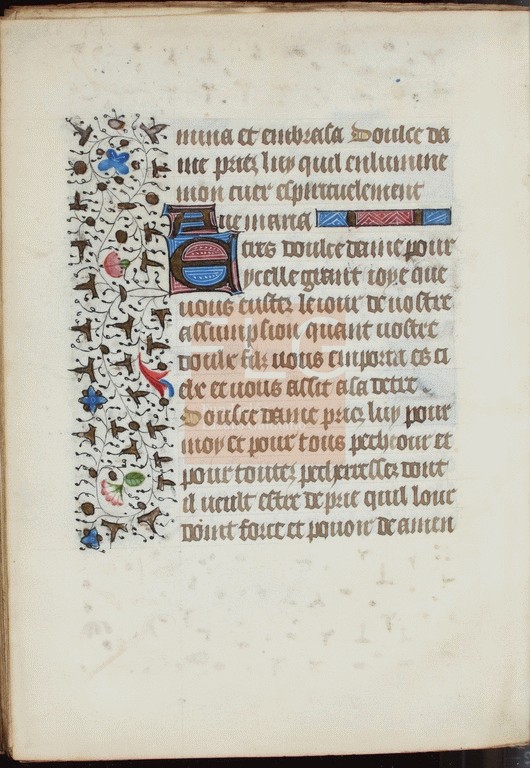 mina et embrasa Doulce da
me priez luy quil enlumine
mon cuer espirituelement
Aue maria
Etres doulce dame pour
ycelle grant ioye que
uous eustez le iour de nostre
assumpsion quant uostre
doulz filz uous emporta es ci
elx et uous assit a sa detre
Doulce dame priez luy pour
moy et pour tous pecheour et
pour toutez pecherressez dont
il ueult estre de prie quil lour
doint force et pouoir de amen